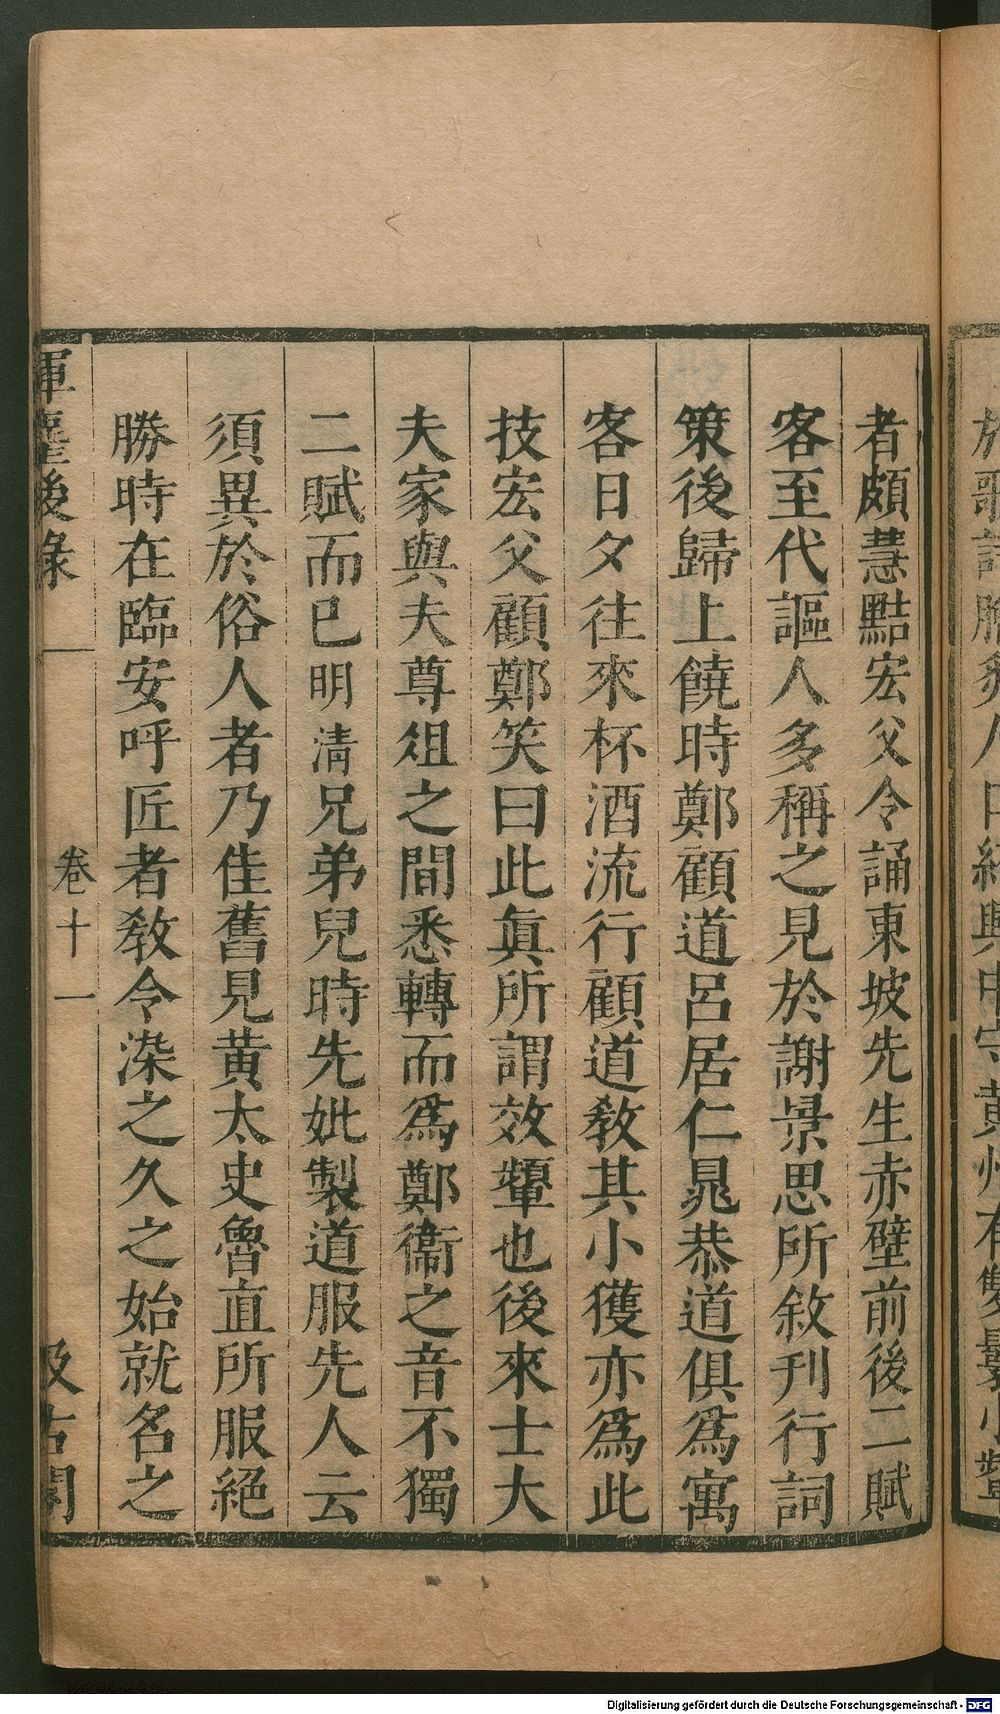 者頗慧黠宏父令誦東坡先生赤壁前後二賦
客至代謳人多稱之見於謝景思所敘刊行詞
策後歸上饒時鄭顧道呂居仁晁恭道俱爲寓
客日夕往來杯酒流行顧道敎其小獲亦爲此
技宏父顧鄭笑曰此眞所謂效顰也後來士大
夫家與夫尊俎之間悉轉而爲鄭衞之音不獨
二賦而已明淸兄弟兒時先妣製道服先人云
須異於俗人者乃佳舊見黃太史魯直所服絕
勝時在臨安呼匠者敎令染之久之始就名之
軍麈後錄
卷十一
汲古閣
Digitalisierung gefördert durch die Deutsche Forschungsgemeinschaft - DFG